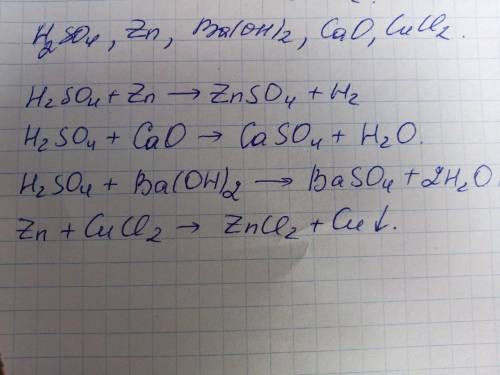 H₂SO₄, Zn, Ba(OH)₂, CaO, CuCl₂.
H₂SO₄ + Zn → ZnSO₄ + H₂
H₂SO₄ + CaO → CaSO₄ + H₂O.
H₂SO₄ + Ba(OH)₂ → BaSO₄ + 2H₂O.
Zn + CuCl₂ → ZnCl₂ + Cu↓.